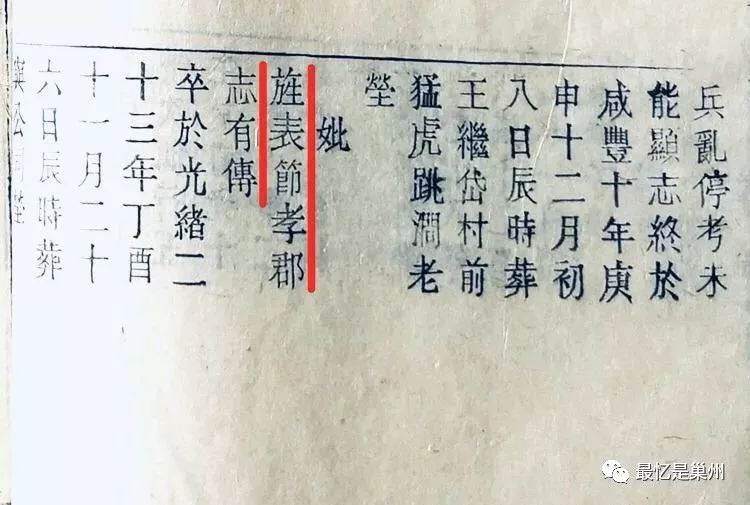 兵亂停考未
能顯志終於
咸豐十年庚
申十二月初
八日辰時葬
王繼岱村前
猛虎跳澗老
塋
妣
旌表節孝郡
志有傳
卒於光緒二
十三年丁酉
十一月二十
六日辰時葬
與公同塋
最忆是巢州